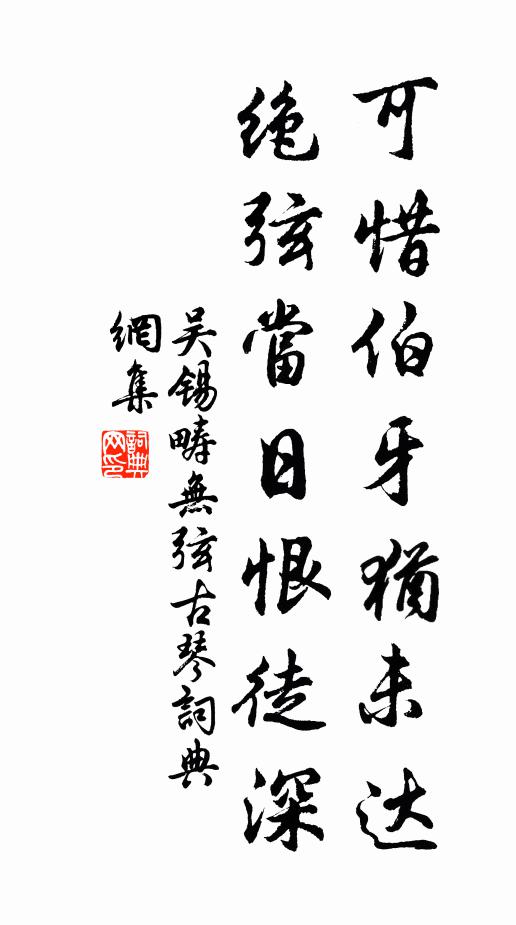 可惜伯牙猶未达
绝弦當日恨徒深
吴锡畴無弦古琴詞典
網集
詞典网印